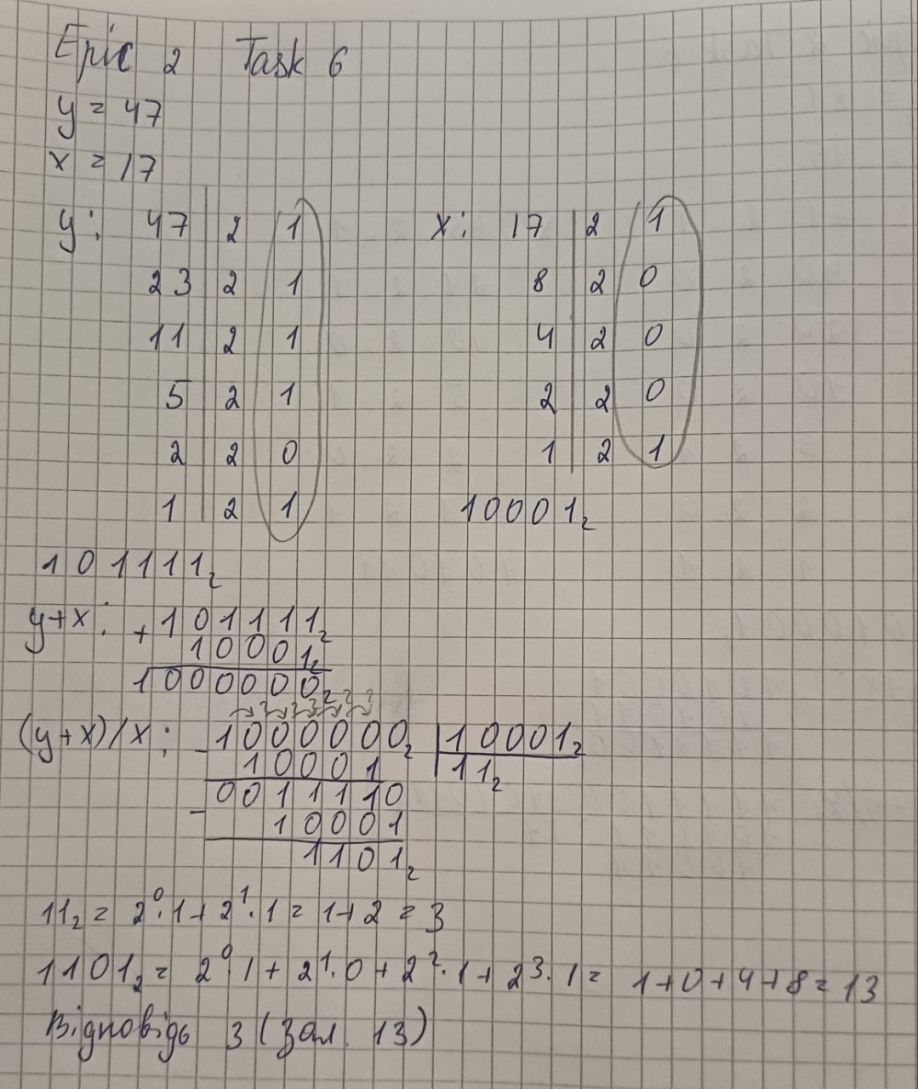 Epic 2 Task 6
y = 47
x = 17
y: 47 | 2 | 1 x: 17 | 2 | 1
23 | 2 | 1 8 | 2 | 0
11 | 2 | 1 4 | 2 | 0
5 | 2 | 1 2 | 2 | 0
2 | 2 | 0 1 | 2 | 1
1 | 2 | 1 10001₂
101111₂
y+x: + 101111₂
10001₂
1000000₂
(y+x)/x: - 1000000₂ | 10001₂
10001 11₂
0011110
- 10001
1101₂
11₂ = 2⁰·1 + 2¹·1 = 1+2 = 3
1101₂ = 2⁰·1 + 2¹·0 + 2²·1 + 2³·1 = 1+0+4+8 = 13
Відповідь 3 (зал. 13)